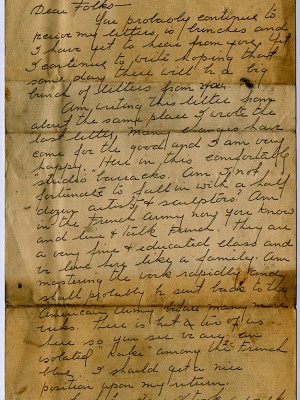 Dear Folks
You probably continue to
receive my letters, in bunches and
I have yet to hear from you. Yet
I continue to write hoping that
some day there will be a big
bunch of letters from you.
Am writing this letter from
about the same place I wrote the
last letter. Many changes have
come for the good and I am very
happy. Here in this comfortable
"studio" barracks. Am I not
fortunate to fall in with a half
dozen artists & sculptors? Am
in the French Army now you know
and live & talk French. They are
a very fine & educated class and
we live here like a family. Am
mastering the work rapidly and
shall probably be sent back to the
American Army before many more
weeks. There is but a few of us
here so you see we are an
isolated "Kaki" among the French
blue. I should get a nice
position upon my return.